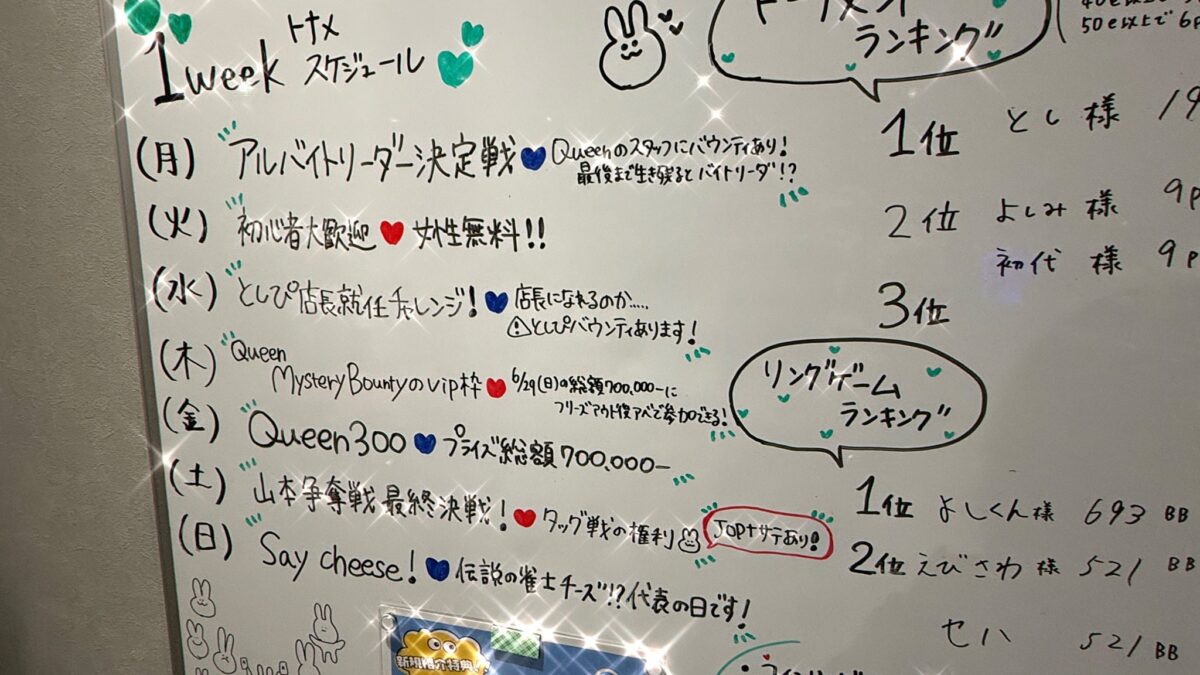 1week トナメスケジュール
(月) アルバイトリーダー決定戦 Queenのスタッフにバウンティあり!
最後まで生き残るとバイトリーダ!?
(火) 初心者大歓迎 女性無料!!
(水) としぴ店長就任チャレンジ! 店長になれるのか.....
⚠としぴバウンティあります!
(木) Queen
Mystery BountyのVip枠 6/29(日)の総額700,000-に
フリーズアウト後アベで参加できる!
(金) Queen300 プライズ総額700,000-
(土) 山本争奪戦 最終決戦! タッグ戦の権利 JOPTサテあり!
(日) Say cheese! 伝説の雀士チーズ!?代表の日です!
新規紹介特典!!
トーナメント
ランキング
50e以上で6p
1位 とし様 19
2位 よしみ様 9p
初代様 9p
3位
リングゲーム
ランキング
1位 よしくん様 693 BB
2位 えびさわ様 521 BB
セハ 521 BB